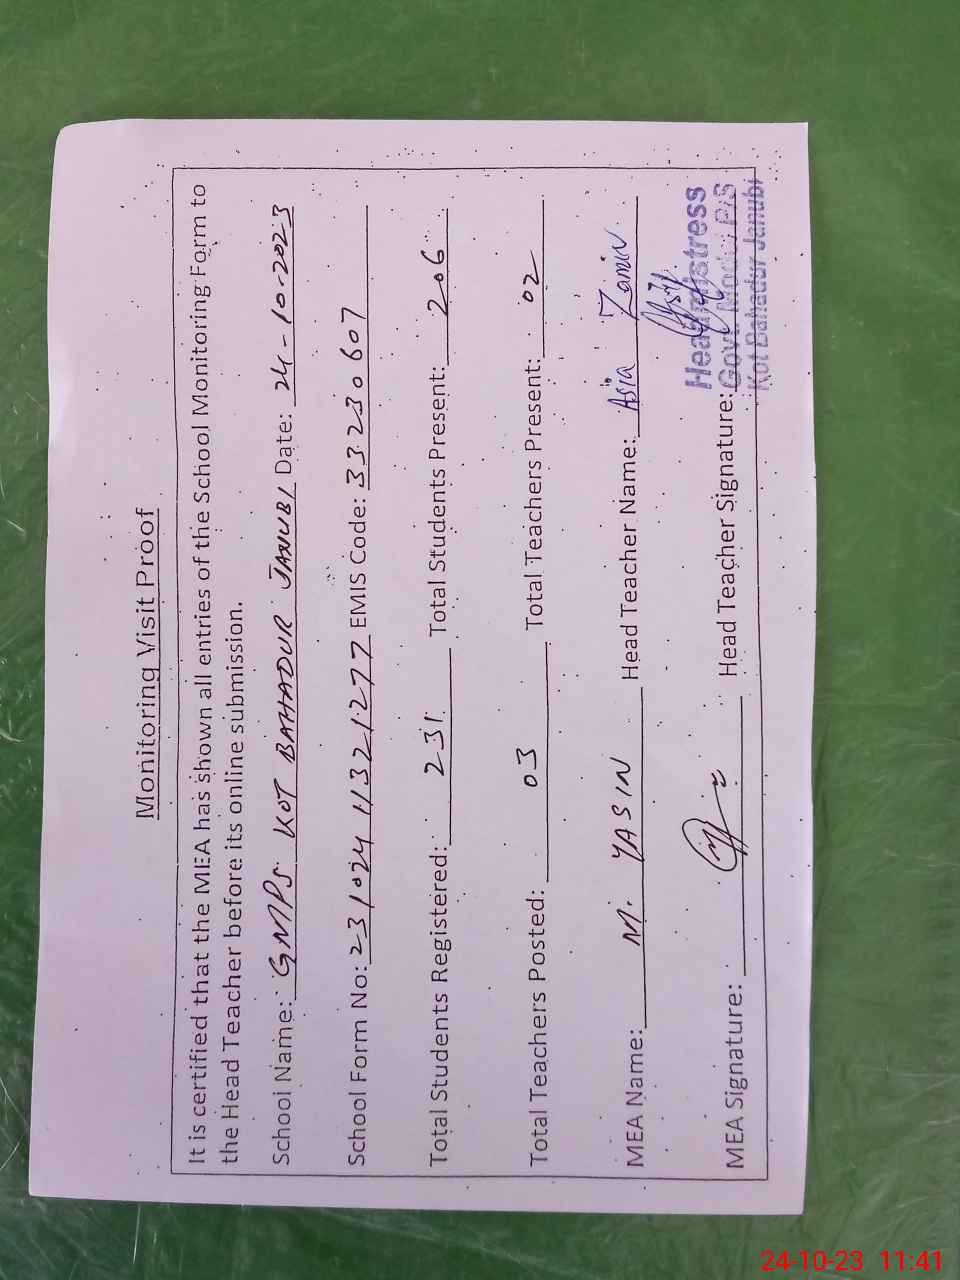 Monitoring Visit Proof
It is certified that the MEA has shown all entries of the School Monitoring Form to
the Head Teacher before its online submission.
School Name: GMPS KOT BAHADUR JANUBI Date: 24-10-2023
School Form No: 231024 1132 1277 EMIS Code: 33230607
Total Students Registered: 231 Total Students Present: 206
Total Teachers Posted: 03 Total Teachers Present: 02
MEA Name: M. YASIN Head Teacher Name: Asia Zamin
MEA Signature: Head Teacher Signature:
Headmistress
Govt. Model P/S
Kot Bahadur Janubi
24-10-23 11:41